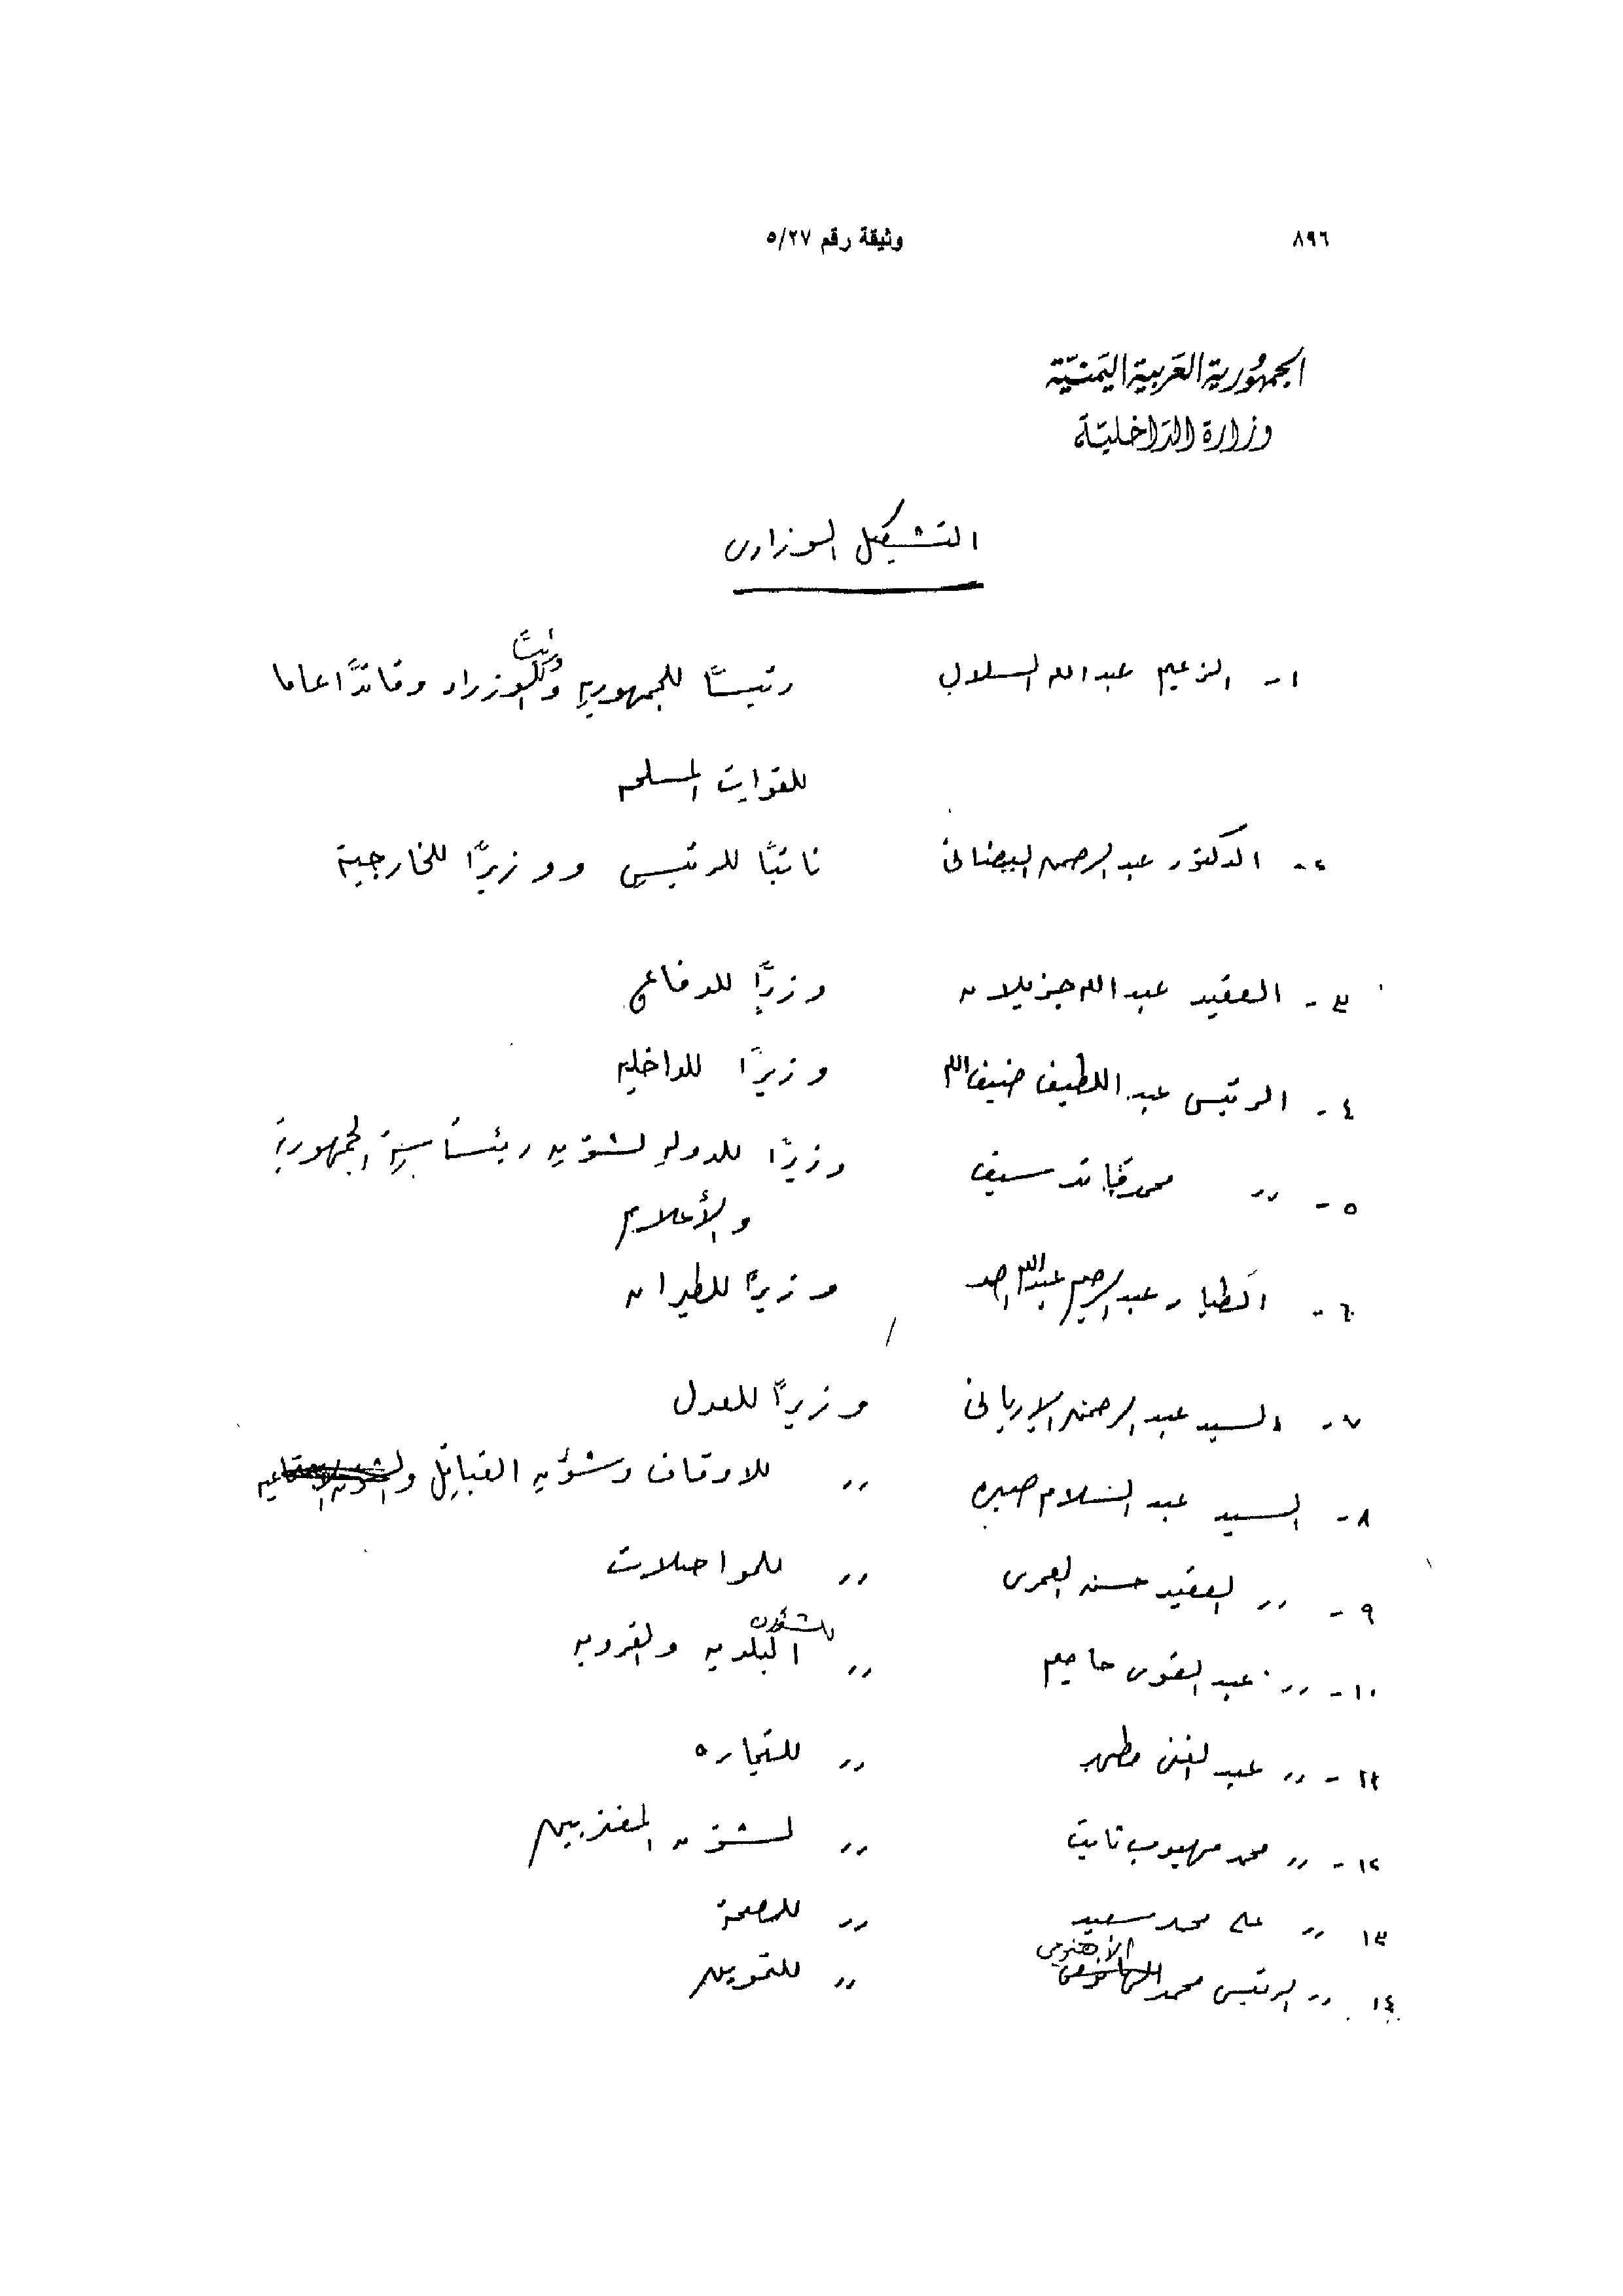 ٨٩٦ وثيقة رقم ٥/٢٧
الجمهورية العربية اليمنية
وزارة الداخلية
التشكيل الوزارى
١- الزعيم عبدالله السلال رئيسًا للجمهورية ورئيسًا للوزراء وقائدًا عاما
للقوات المسلحه
٢- الدكتور عبدالرحمن البيضانى نائبًا للرئيس ووزيرًا للخارجية
٣- العقيد عبدالله جزيلان وزيرًا للدفاع
٤- الرئيس عبد اللطيف ضيف الله وزيرًا للداخليه
٥- 〃 محمد قائد سيف وزيرًا للدوله لشئون رئاسة الجمهورية
والأعلام
٦- الطيار عبدالرحيم عبدالله وزيرًا للطيران
٧- السيد عبدالرحمن الإريانى وزيرًا للعدل
٨- السيد عبد السلام صبره 〃 للاوقاف وشؤن القبائل والشؤن الاجتماعيه
٩- 〃 العقيد حسن العمرى 〃 للمواصلات
١٠- 〃 عبد القوى حاميم 〃 للشؤون البلديه والقرويه
١١- 〃 عبد الغنى مطهر 〃 للتجاره
١٢- 〃 محمد مهيوب ثابت 〃 لشئون المغتربين
١٣ 〃 على محمد سعيد 〃 للصحة
١٤ 〃 الرئيس محمد الأهنومى 〃 للتموين